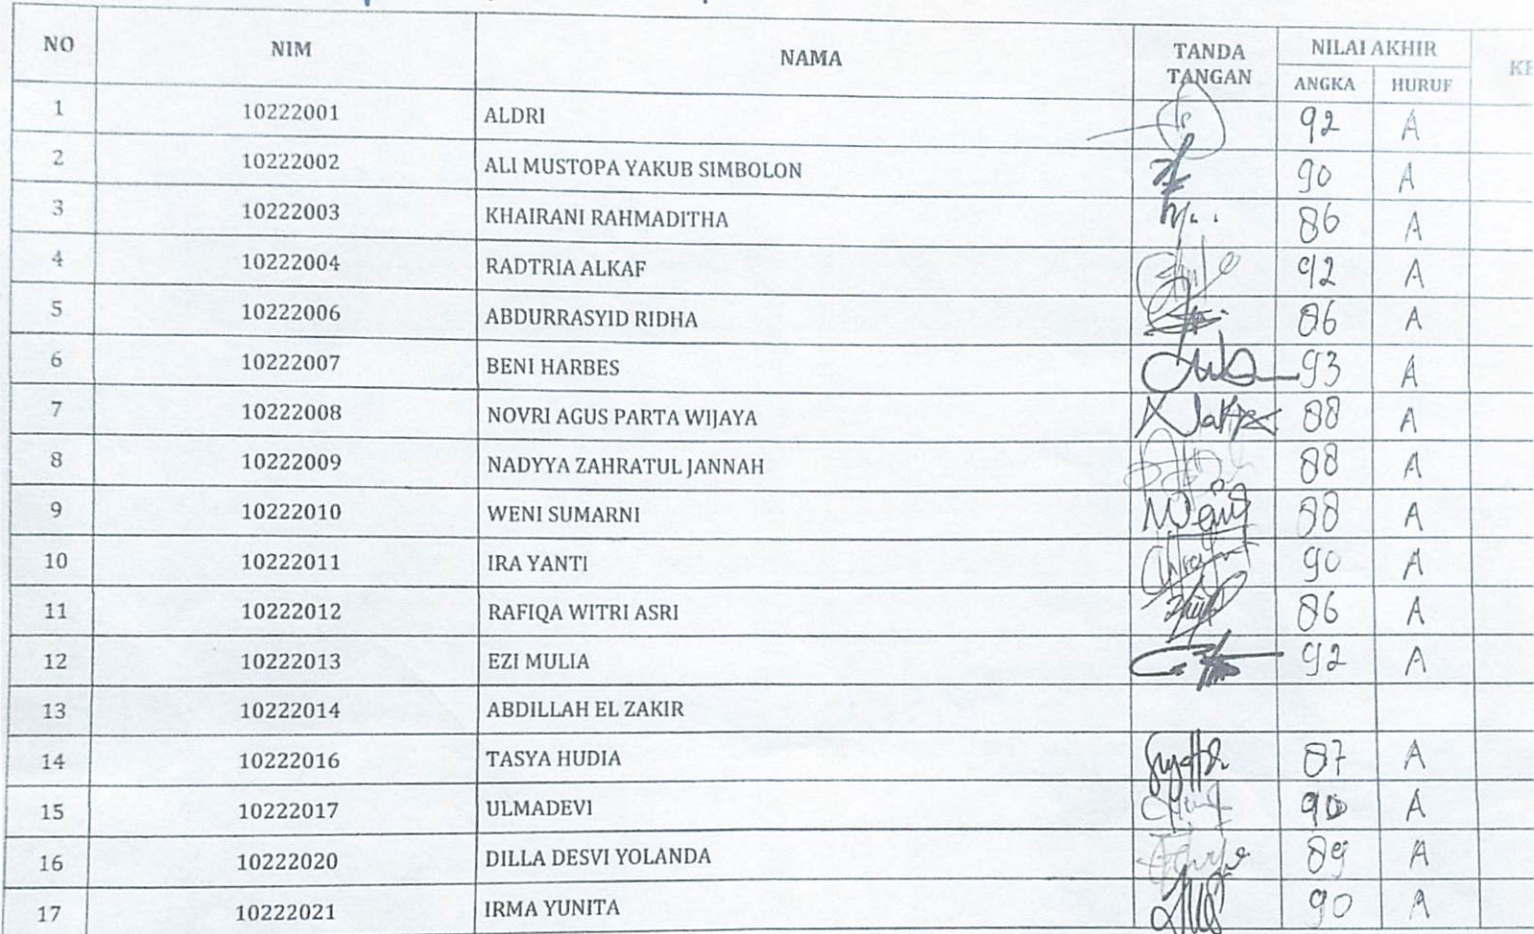 NO NIM NAMA TANDA TANGAN NILAI AKHIR
ANGKA HURUF
1 10222001 ALDRI 92 A
2 10222002 ALI MUSTOPA YAKUB SIMBOLON 90 A
3 10222003 KHAIRANI RAHMADITHA 86 A
4 10222004 RADTRIA ALKAF 92 A
5 10222006 ABDURRASYID RIDHA 86 A
6 10222007 BENI HARBES 93 A
7 10222008 NOVRI AGUS PARTA WIJAYA 88 A
8 10222009 NADYYA ZAHRATUL JANNAH 88 A
9 10222010 WENI SUMARNI 88 A
10 10222011 IRA YANTI 90 A
11 10222012 RAFIQA WITRI ASRI 86 A
12 10222013 EZI MULIA 92 A
13 10222014 ABDILLAH EL ZAKIR
14 10222016 TASYA HUDIA 87 A
15 10222017 ULMADEVI 90 A
16 10222020 DILLA DESVI YOLANDA 89 A
17 10222021 IRMA YUNITA 90 A